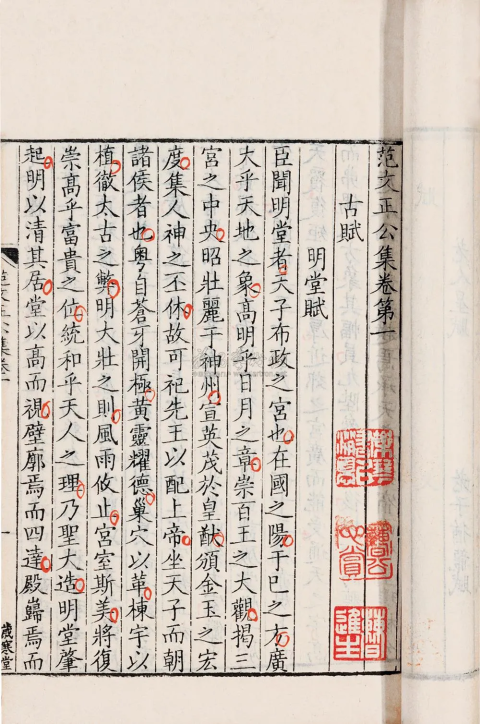 范文正公集卷第一
古賦
明堂賦
臣聞明堂者天子布政之宮也在國之陽于巳之方廣
大乎天地之象高明乎日月之章崇百王之大觀揭三
宮之中央昭壯麗于神州宣英茂於皇猷頒金玉之宏
度集人神之丕休故可祀先王以配上帝坐天子而朝
諸侯者也粵自蒼牙開極黃靈耀德巢穴以革棟宇以
植徹太古之弊明大壯之則風雨攸止宮室斯美將復
崇高乎富貴之位統和乎天人之理乃聖大造明堂肇
起明以清其居堂以高而視壁廓焉而四達殿巋焉而
范文正公集卷一
一
歲寒堂